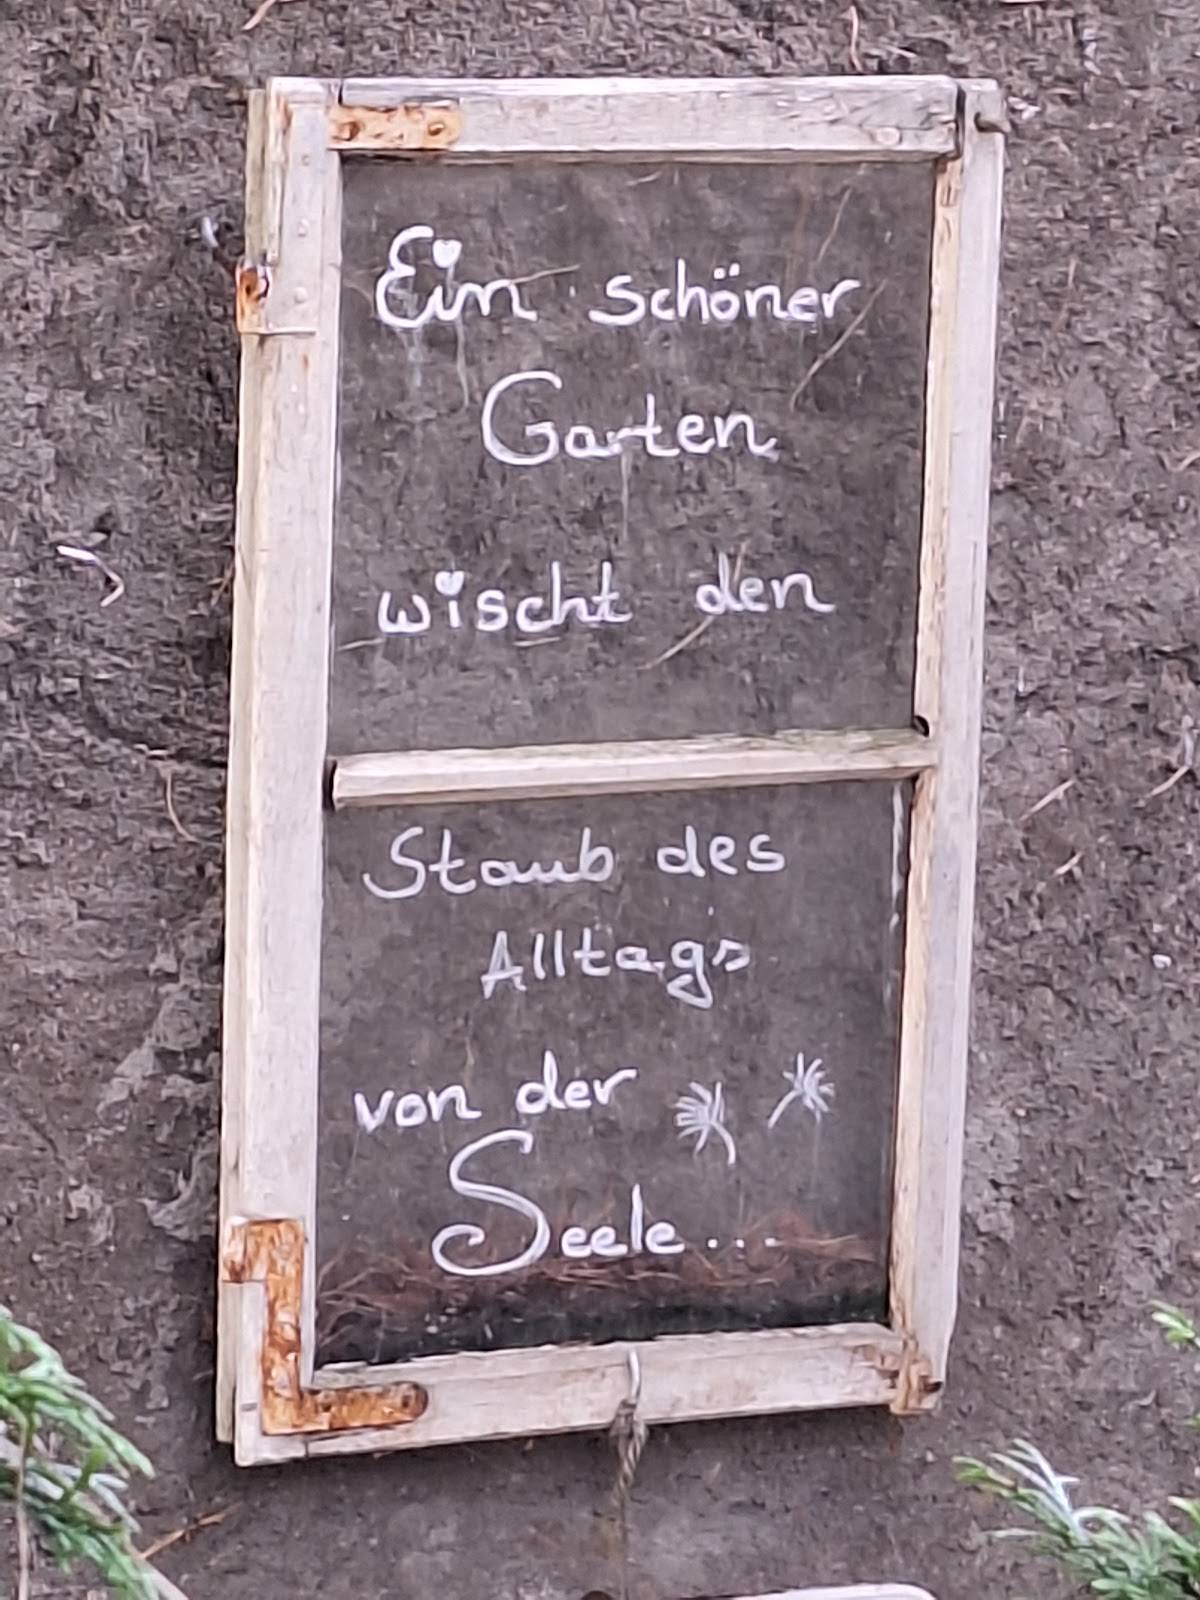 Ein schöner
Garten
wischt den
Staub des
Alltags
von der
Seele...